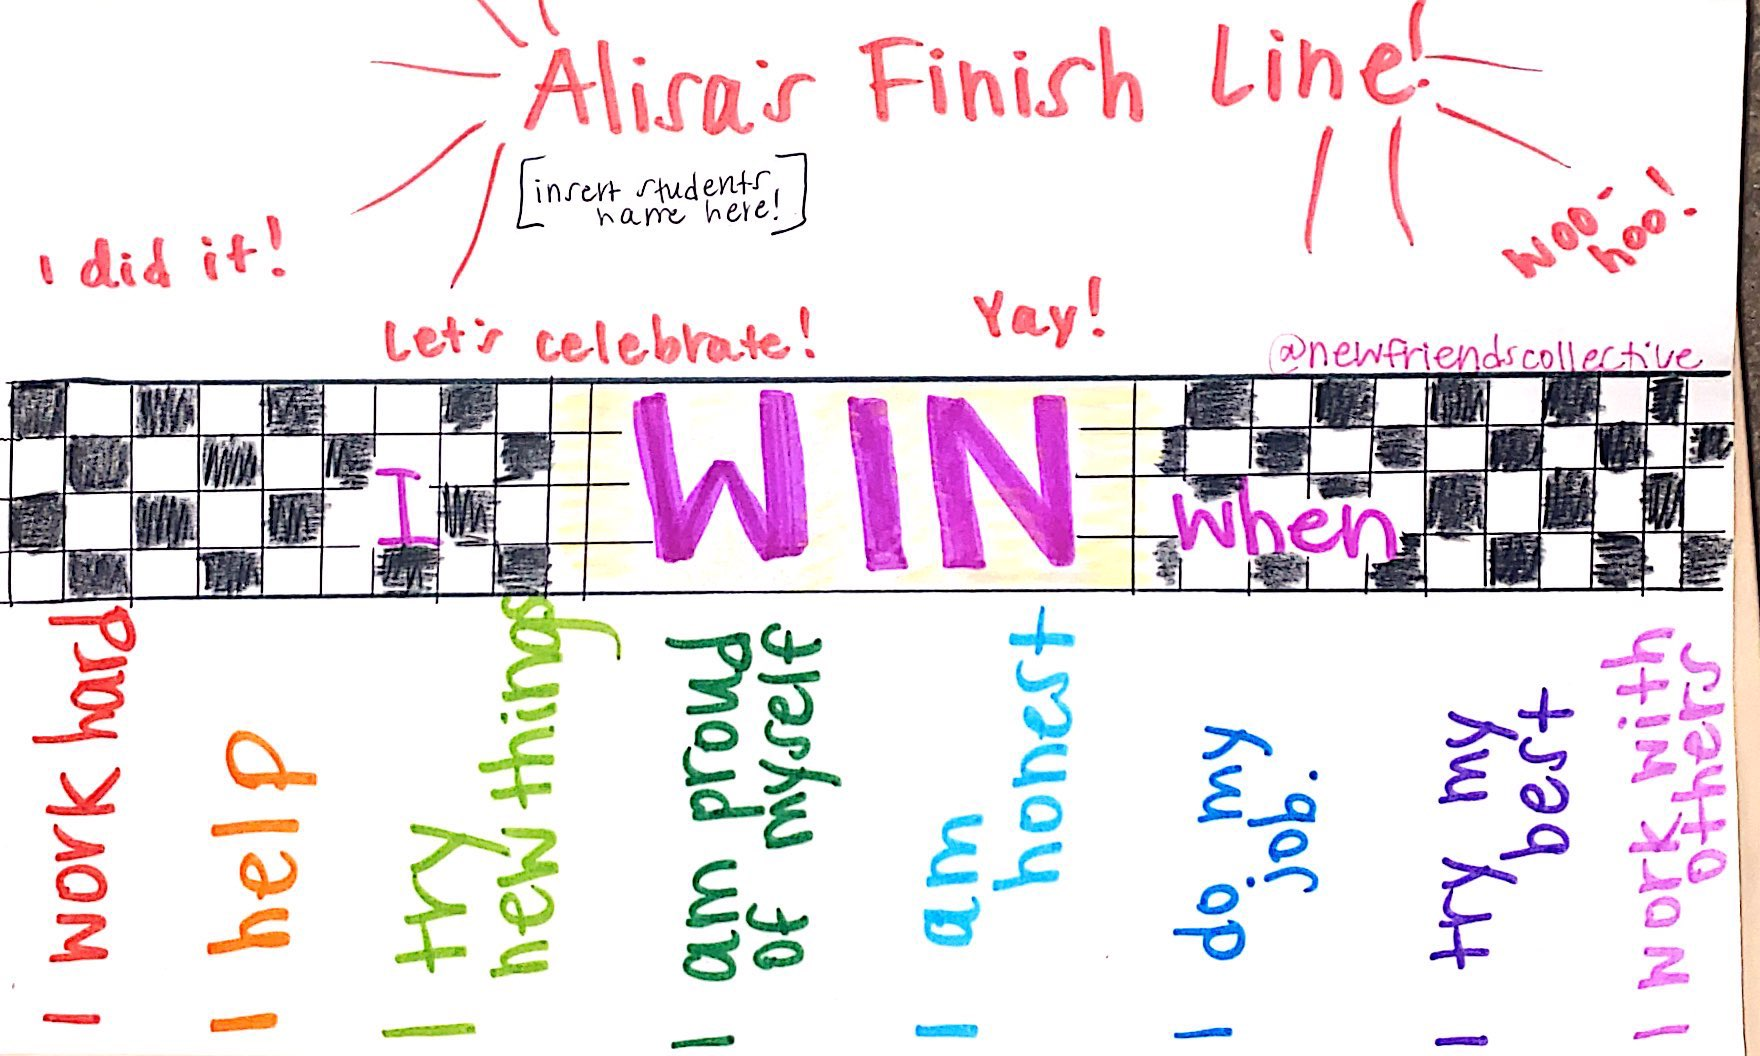 Alisa's Finish Line!
[insert students
name here!]
I did it!
Let's celebrate!
Yay!
woo-
hoo!
@newfriendscollective
I WIN when
I work hard
I help
I try
new things
I am proud
of myself
I am
honest
I do my
job.
I try my
best
I work with
others